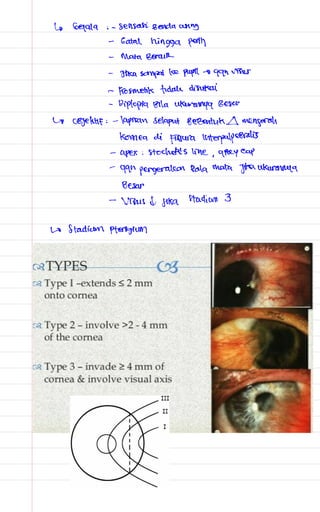 ↳ Gejala : - Sensasi Benda asing
- Gatal hingga perih
- Mata Berair
- Jika sampai ke pupil → ggn visus
- Kosmetik tidak disukai
- Diplopia Bila ukurannya Besar
↳ Objektif : - lapisan selaput Berbentuk △ mengarah
kornea di Fissura Interpalpebralis
- apex : stocker's line, grey cap
- ggn pergerakan Bola mata jika ukurannya
Besar
- Visus ↓ jika Stadium 3
↳ Stadium Pterigium
TYPES
Type I –extends ≤ 2 mm
onto cornea
Type 2 – involve >2 - 4 mm
of the cornea
Type 3 – invade ≥ 4 mm of
cornea & involve visual axis
III
II
I